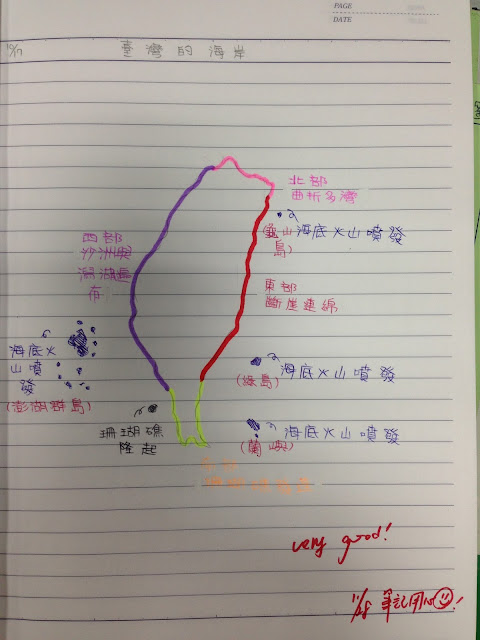 PAGE
DATE
10/17
臺灣的海岸
北部
曲折多灣
海底火山噴發
(龜山
島)
西部
沙洲與
潟湖遍
布
東部
斷崖連綿
海底火
山噴
發
(澎湖群島)
海底火山噴發
(綠島)
珊瑚礁
隆起
海底火山噴發
(蘭嶼)
very good!
筆記用心!